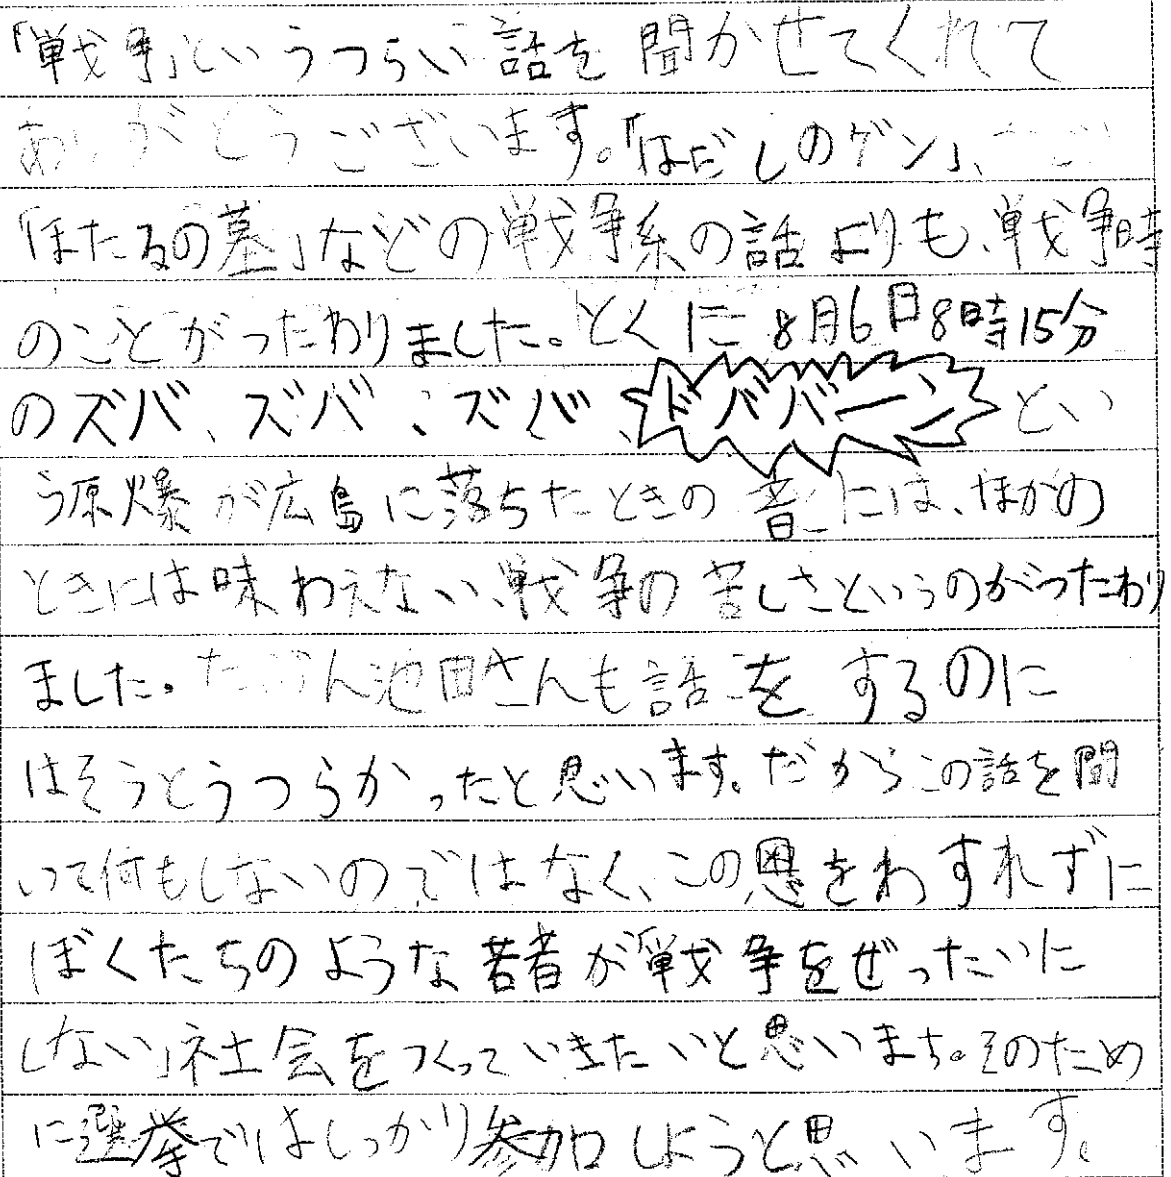 「戦争」というつらい話を聞かせてくれて
ありがとうございます。「はだしのゲン」、
「ほたるの墓」などの戦争系の話よりも、戦争時
のことがつたわりました。とくに8月6日8時15分
のズバ、ズバ、ズバ、ドババーンとい
う原爆が広島に落ちたときの音には、ほかの
ときには味わえない、戦争の苦しさというのがつたわり
ました。たぶん池田さんも話をするのに
はそうとうつらかったと思います。だからこの話を聞
いて何もしないのではなく、この恩をわすれずに
ぼくたちのような若者が「戦争をぜったいに
しない」社会をつくっていきたいと思いまち。そのため
に選挙ではしっかり参加しようと思います。